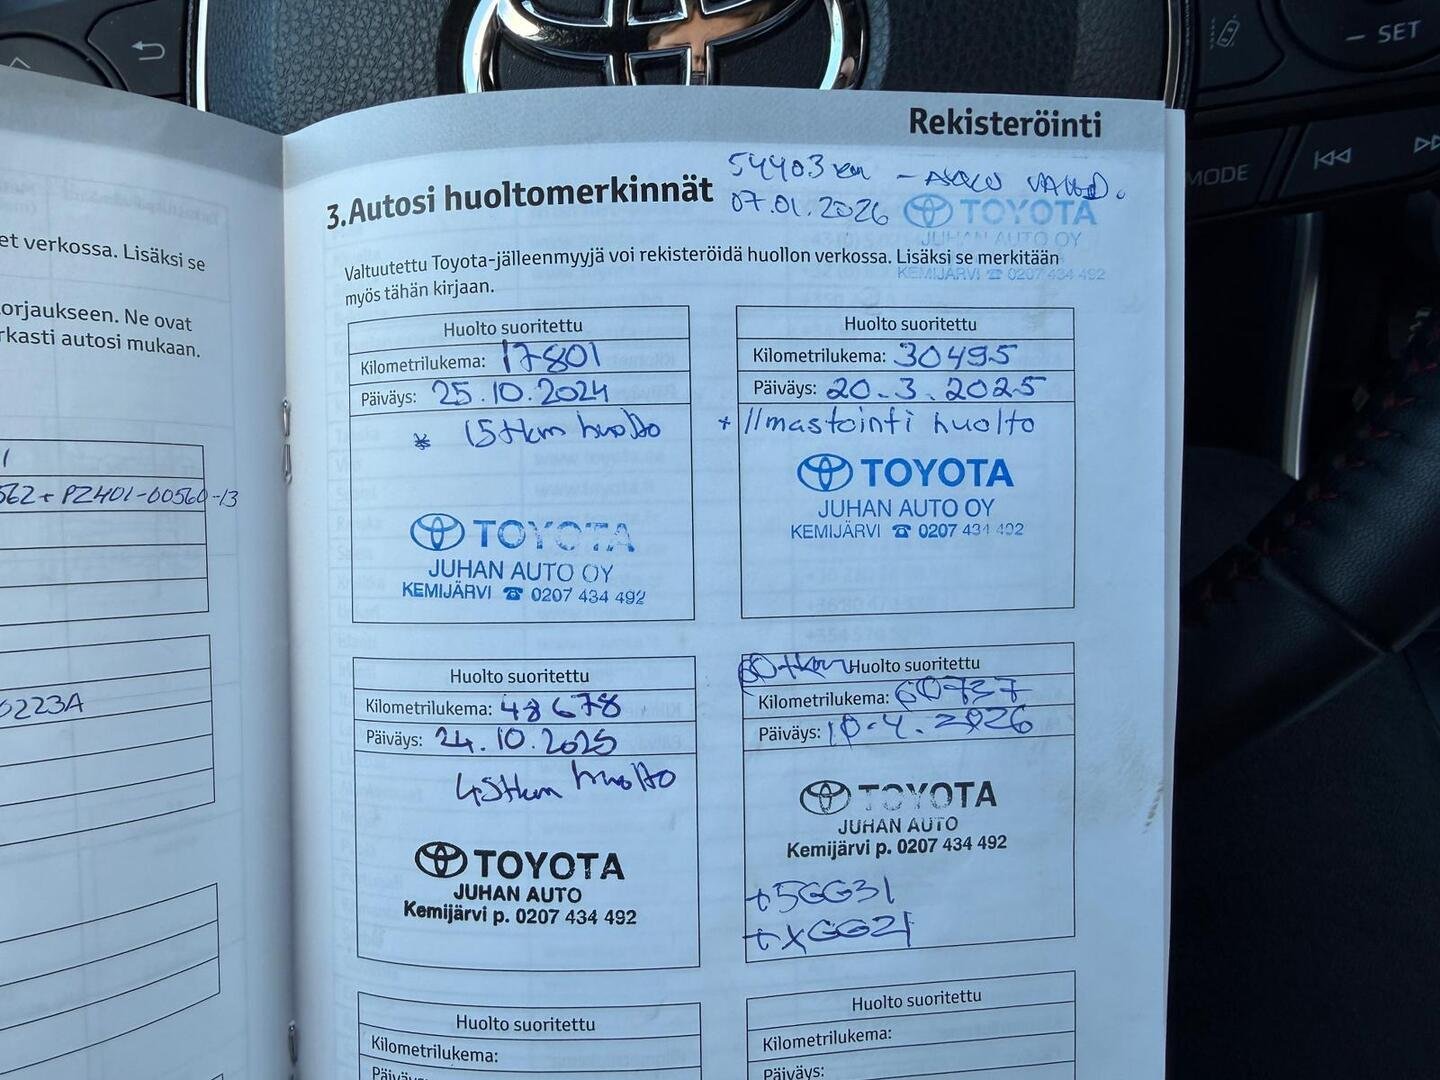 SET
MODE
Rekisteröinti
54403 km - AKKU VAIHD.
07.01.2026
TOYOTA
JUHAN AUTO OY
KEMIJÄRVI ☎ 0207 434 492
3. Autosi huoltomerkinnät
Valtuutettu Toyota-jälleenmyyjä voi rekisteröidä huollon verkossa. Lisäksi se merkitään
myös tähän kirjaan.
et verkossa. Lisäksi se
orjaukseen. Ne ovat
rkasti autosi mukaan.
562 + PZ401-00560-13
0223A
Huolto suoritettu
Kilometrilukema: 17801
Päiväys: 25.10.2024
* 15tkm huolto
TOYOTA
JUHAN AUTO OY
KEMIJÄRVI ☎ 0207 434 492
Huolto suoritettu
Kilometrilukema: 30495
Päiväys: 20.3.2025
+ Ilmastointi huolto
TOYOTA
JUHAN AUTO OY
KEMIJÄRVI ☎ 0207 434 492
Huolto suoritettu
Kilometrilukema: 48678
Päiväys: 24.10.2025
45tkm huolto
TOYOTA
JUHAN AUTO
Kemijärvi p. 0207 434 492
60tkm Huolto suoritettu
Kilometrilukema: 60737
Päiväys: 10.4.2026
TOYOTA
JUHAN AUTO
Kemijärvi p. 0207 434 492
+5GG31
+XGG21
Huolto suoritettu
Kilometrilukema:
Päiväys:
Huolto suoritettu
Kilometrilukema:
Päiväys: